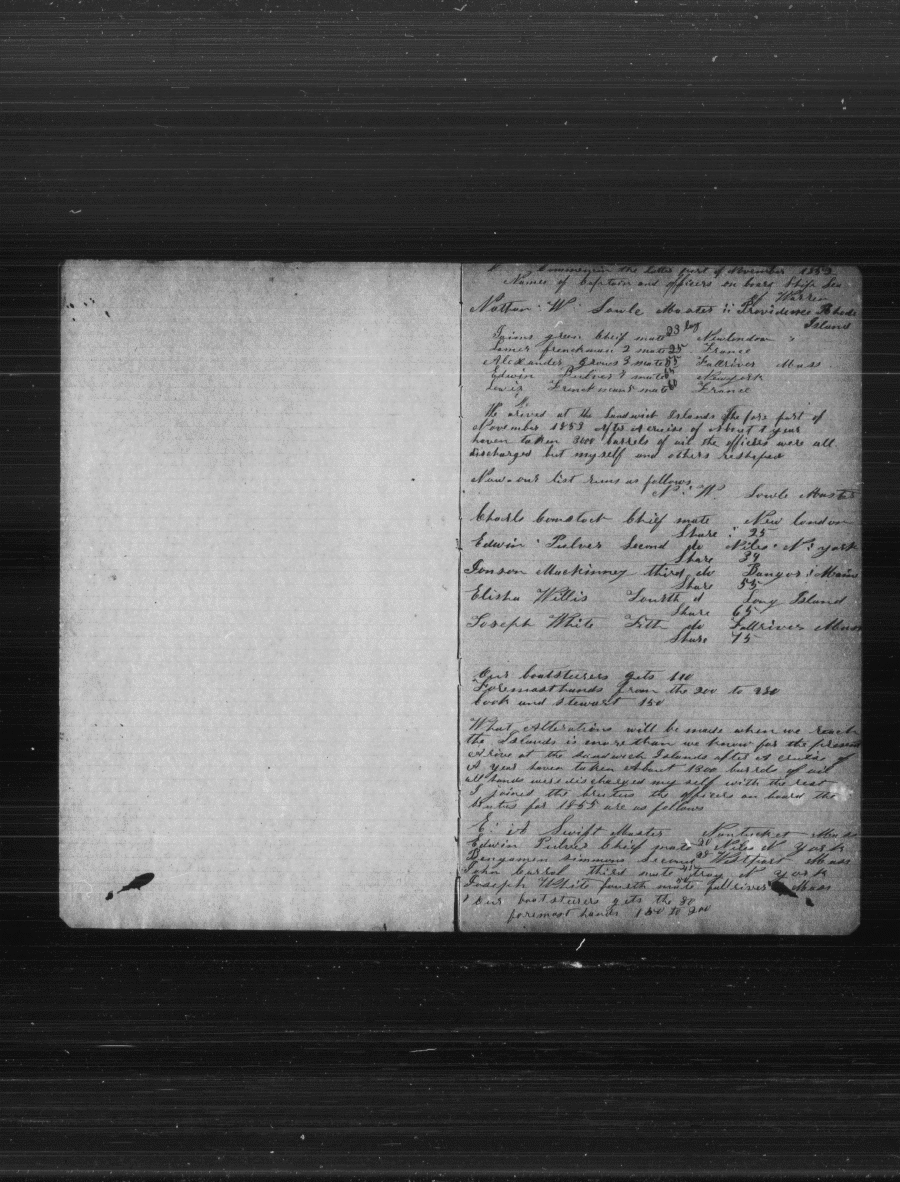 Commencing the latter part of November 1852
Names of Captain and officers on board Ship Sea
of Warren
Nathan W Sowle Master Providence Rhode
Island
James green Chief mate 23 lay Newlondon
frenchman 2 mate 25 France
Alexander 3 mate 55 Fallriver Mass
Edwin Pulver 4 mate Newyork
Lewis mate 60 France
We arived at the Sandwich Islands the fore part of
November 1853 after A cruise of About 1 year
haven taken barrels of oil the officers were all
discharged but myself and others reshiped
Now our list runs as follows
N. W. Sowle Master
Charls Comstock Chief mate New london
Share 25
Edwin Pulver Second do Niles N. york
Share 39
Jonson Mackinney third do Bangor Main
Share 55
Elisha Willis Fourth d Long Island
Share 65
Joseph White Fith do Fallriver Mass
Share 75
Our boatsturers gets 110
Foremasthands from the 200 to
Cook and stewart 150
What Alterations will be made when we reach
the Islands is more than we know for the present
Arive at the Sandwich Islands after A cruise of
A year haven taken About 1300 barrels of oil
all hands were discharged my self with the rest
I joined the brutus the officers on board the
brutus for 1855 are as follows
Swift Master Nantucket Mass
Edwin Pulver Chief mate 20 Niles N York
Bengamen simmons Second 28 Westport Mass
John Carrol third mate troy N York
Joseph White fourth mate fallriver Mass
Our boatsturers gets the 80
foremost hands 150 to 200